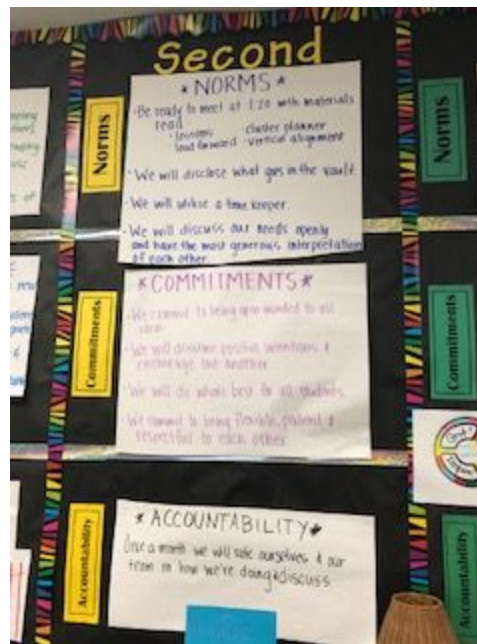 Second
Norms
*NORMS*
• Be ready to meet at 1:20 with materials
read
• lessons • cluster planner
• load forward • vertical alignment
• We will disclose what goes in the vault
• We will utilize a time keeper.
• We will discuss our needs openly
and have the most generous interpretation
of each other
Norms
Commitments
*COMMITMENTS*
• We commit to being open minded to all
ideas
• We will assume positive intentions &
encourage one another
• We will do whats best for all students
• We commit to being flexible, patient &
respectful to each other
Commitments
Accountability
*ACCOUNTABILITY*
Once a month we will rate ourselves & our
team on how we're doing & discuss
Accountability